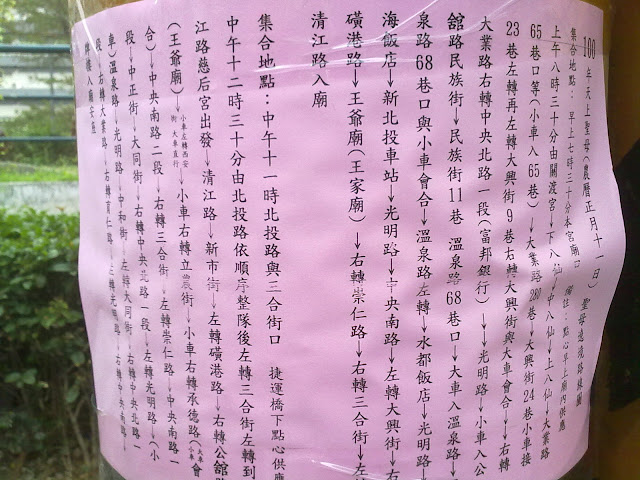 100年天上聖母(農曆正月十一日)聖母遶境路線圖
集合地點：早上七時三十分本宮廟口 備註：點心早上廟內供應
上午八時三十分由關渡宮→下八仙→中八仙→上八仙→大業路
65巷口等(小車入65巷)→大業路280巷→大興街24巷小車接
23巷左轉再左轉大興街9巷右轉大興街與大車會合→→右轉
大業路右轉中央北路一段(富邦銀行)→→光明路→小車入公
舘路民族街→民族街11巷 溫泉路68巷口→大車入溫泉路→
泉路68巷口與小車會合→溫泉路左轉→水都飯店→光明路→
海飯店→新北投車站→光明路→中央南路→左轉大興街→右
磺港路→王爺廟(王家廟)→右轉崇仁路→右轉三合街→左轉
清江路入廟
集合地點：中午十一時北投路與三合街口 捷運橋下點心供應
中午十二時三十分由北投路依順序整隊後左轉三合街左轉到
江路慈后宮出發→清江路→新市街→左轉磺港路→右轉公舘
(王爺廟)→小車左轉西安街 大車直行→小車右轉立農街→小車右轉承德路(大車小車會
合)→中央南路二段→右轉三合街→左轉崇仁路→中央南路一
段→中正街→大同街→右轉中央北路一段→左轉光明路→(小
車)溫泉路→光明路→中和街→左轉大同街→右轉中央北路一
段→右轉大業路→右轉育仁路→左轉光明路→右轉中央南路→
牌樓入廟安座